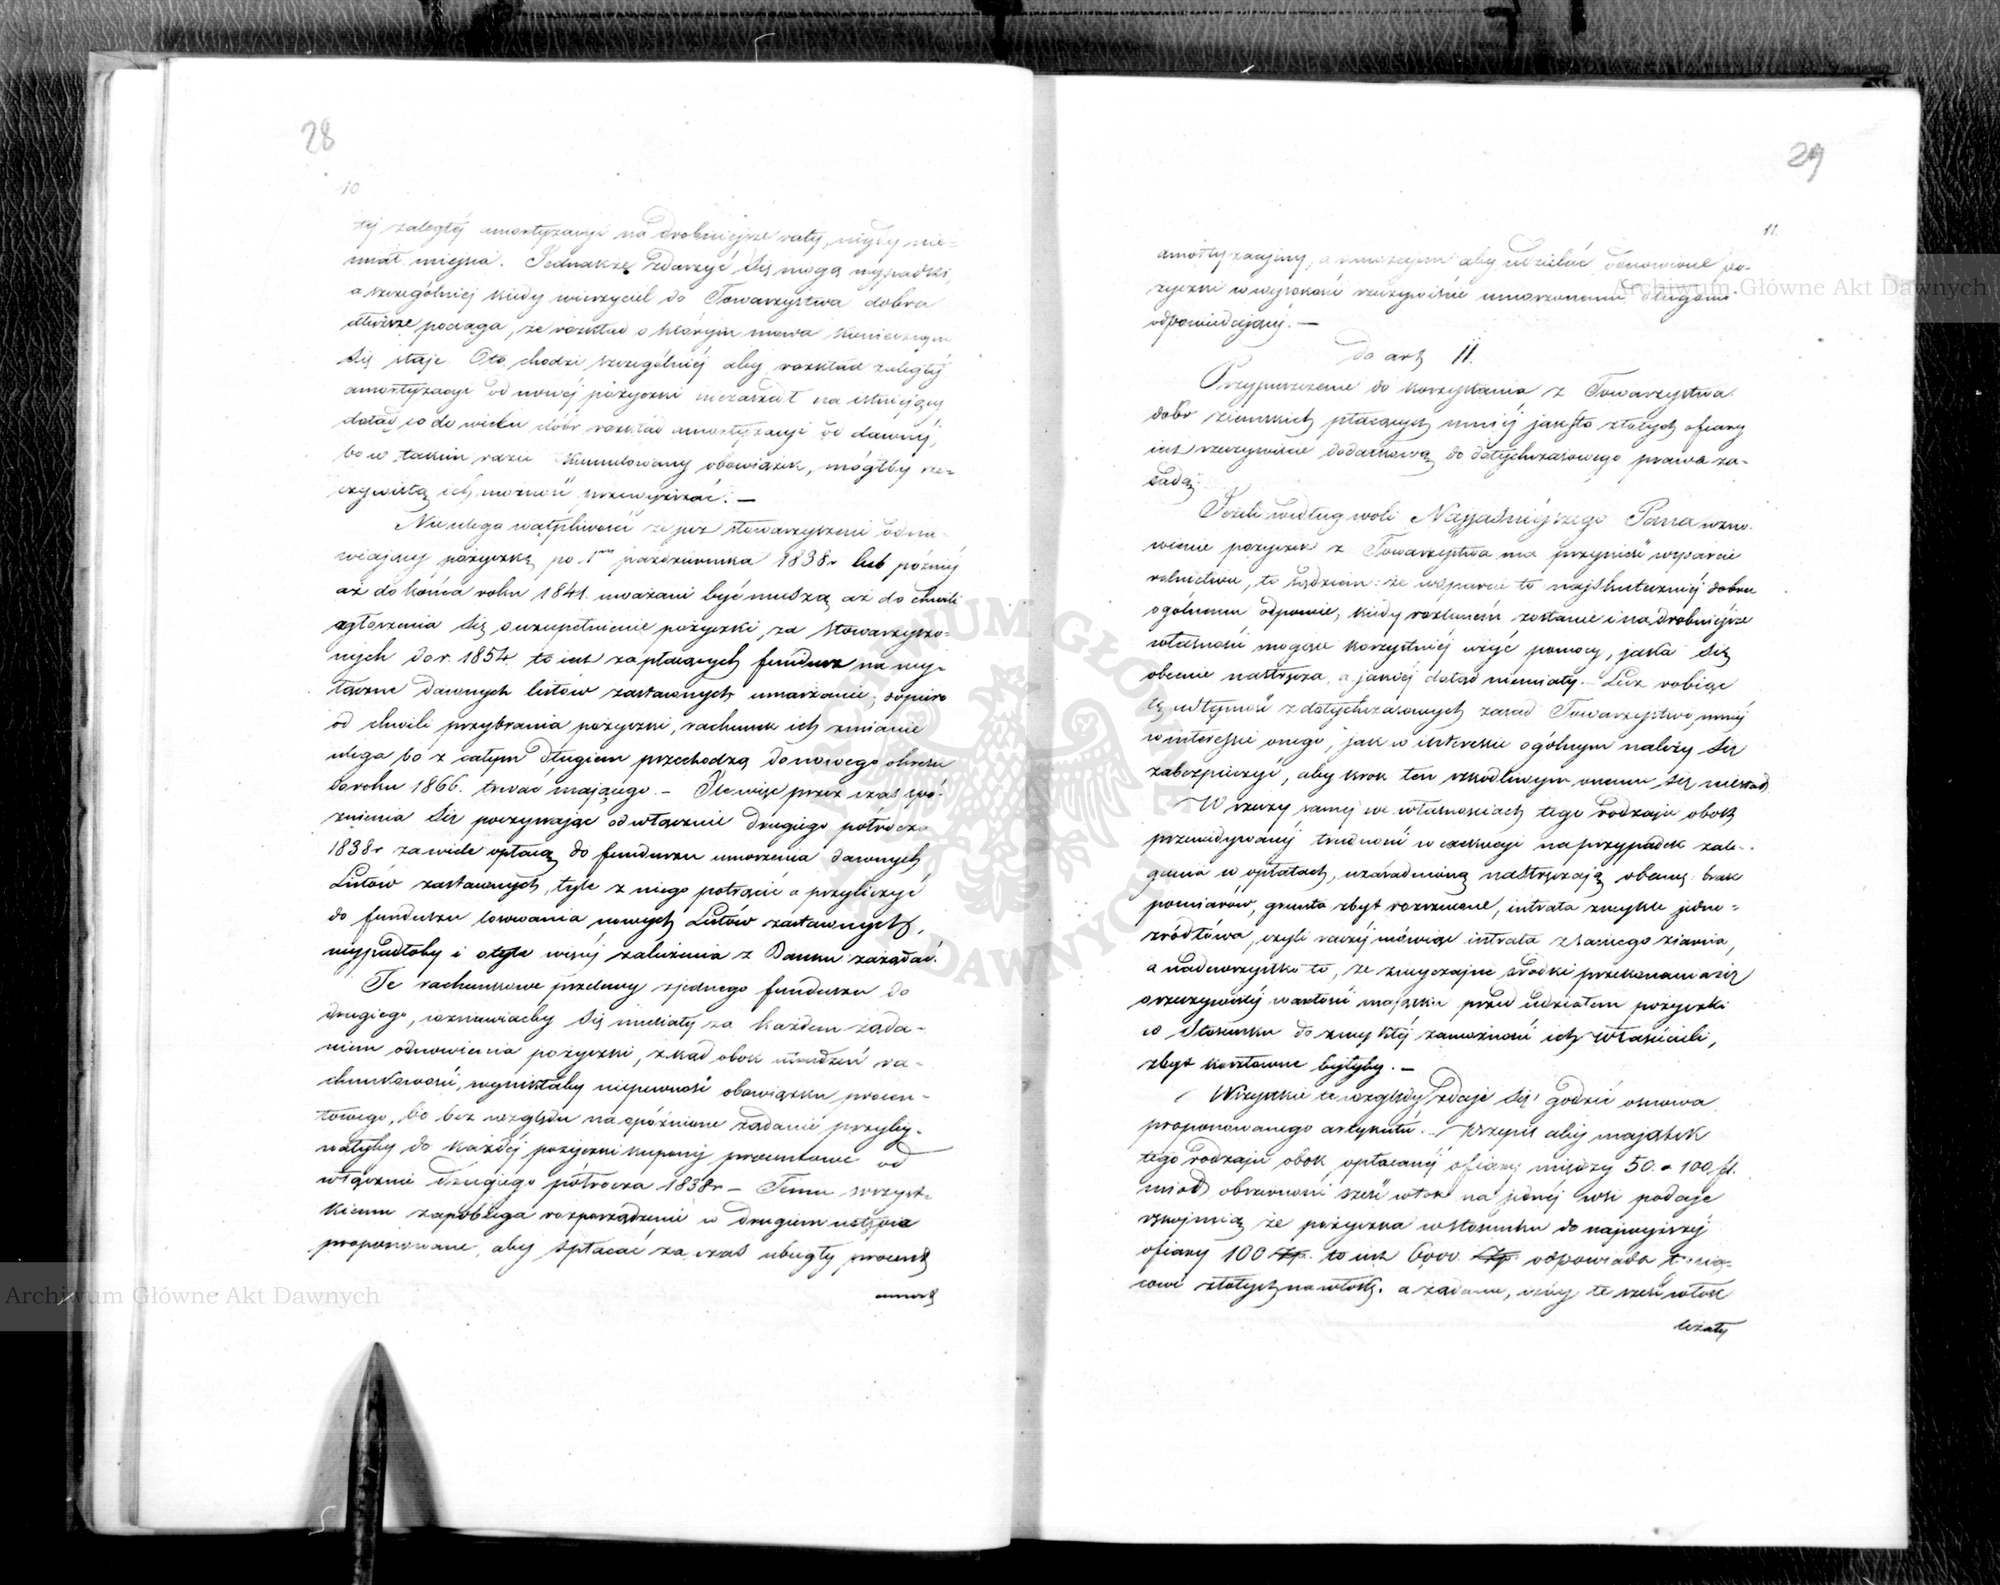 28
10
tej zaległéj amortyzacyi na drobniejsze raty, nigdy nie-
miał miejsca. Jednakże zdarzyć się mogą wypadki,
a szczególniéj kiedy wierzyciel do Towarzystwa dobra
dłuższe pociąga, że rozkład o którym mowa koniecznym
się staje. Oto chodzi szczególniéj aby rozkład zaległéj
amortyzacyi od nowéj pożyczki niezaszedł na istniejący
dotąd co do wielu dóbr rozkład amortyzacyi od dawnéj,
bo w takim razie skumulowany obowiązek, mógłby rze-
czywistą ich możność przewyższać. —
Nie ulega wątpliwości że już stowarzyszeni odna-
wiający pożyczkę po 1ym października 1838 r lub późniéj
aż do końca roku 1841. uważani być muszą aż do chwili
zgłoszenia się o uzupełnienie pożyczki, za stowarzyszo-
nych do r. 1854. to iest za płacących fundusz na wy-
łączne dawnych listów zastawnych umarzanie; dopiero
od chwili przybrania pożyczki, rachunek ich zmianie
ulega bo z całym długiem przechodzą do nowego okresu
do roku 1866. trwać mającego. — Ile więc przez czas spó-
źnienia się poczynając od włącznie drugiego półrocza
1838 r za wiele opłacą do funduszu umorzenia dawnych
Listów zastawnych, tyle z niego potrącić a przyliczyć
do funduszu losowania nowych Listów zastawnych,
wypadłoby i o tyle więcéj zaliczenia z Banku zażądać.
Te rachunkowe przelewy z jednego funduszu do
drugiego, wznawiaćby się musiały za każdem żąda-
niem odnowienia pożyczki, zkąd obok utrudzeń ra-
chunkowości, wynikłaby niepewność obowiązku procen-
towego, bo bez względu na opóźnione żądanie przyby-
wałyby do każdéj pożyczki kupony procentowe od
włącznie drugiego półrocza 1838 r — Temu wszyst-
kiemu zapobiega rozporządzenie w drugiem ustępie
proponowane, aby spłacać za czas ubiegły procent
amort
29
11.
amortyzacyjny, a aby udzielać odnowione po-
życzki w wysokości rzeczywiście umorzonemu długowi
odpowiedającéj. —
do art II.
Przypuszczenie do korzystania z Towarzystwa
dóbr ziemskich płacących mniéj jak sto złotych ofiary
iest rzeczywiście dodatkową do dotychczasowego prawa za-
sadą.
Jeżeli według woli Najjaśniejszego Pana wzno-
wienie pożyczek z Towarzystwa ma przynieść wsparcie
rolnictwu, to sądziem: że wsparcie to najskuteczniéj dobru
ogólnemu odpowie, kiedy rozlanem zostanie i na drobniejsze
własności mogące korzystniéj użyć pomocy, jaka się
obecnie nastręcza, a jakiéj dotąd niemiały. — Lecz robiąc
tę wstępność z dotychczasowych zasad Towarzystwa, mniéj
w interesie onego, jak w interesie ogólnym należy się
zabezpieczyć, aby krok ten szkodliwym onemu się niestał
W rzeczy saméj we własnościach tego rodzaju obok
przewidywanéj trudności w exekucyi na przypadek zale-
gania w opłatach, uzasadnioną nastręczają obawę: brak
pomiarów, grunta zbyt rozrzucone, intrata zwykle jedno-
źródłowa, czyli raczéj mówiąc intrata z samego ziarna,
a nadewszystko to, że zwyczajne środki przekonania się
o rzeczywistéj wartości majątku przed udziałem pożyczki
w stosunku do zwykłéj zamożności ich właścicieli,
zbyt kosztowne byłyby. —
Wszystkie te względy zdaje się godzić osnowa
proponowanego artykułu. — Przepis aby majątek
tego rodzaju obok opłacanéj ofiary między 50. a 100 zł.
miał obszerność sześć włók na jednéj wsi podaje
rękojmią że pożyczka w stosunku do najwyższéj
ofiary 100 Złp. to iest 6,000. Złp. odpowiada tysią-
cowi złotych na włókę. a żądanie, ażeby te sześć włók
leżały
Archiwum Główne Akt Dawnych
Archiwum Główne Akt Dawnych
ARCHIWUM GŁÓWNE AKT DAWNYCH